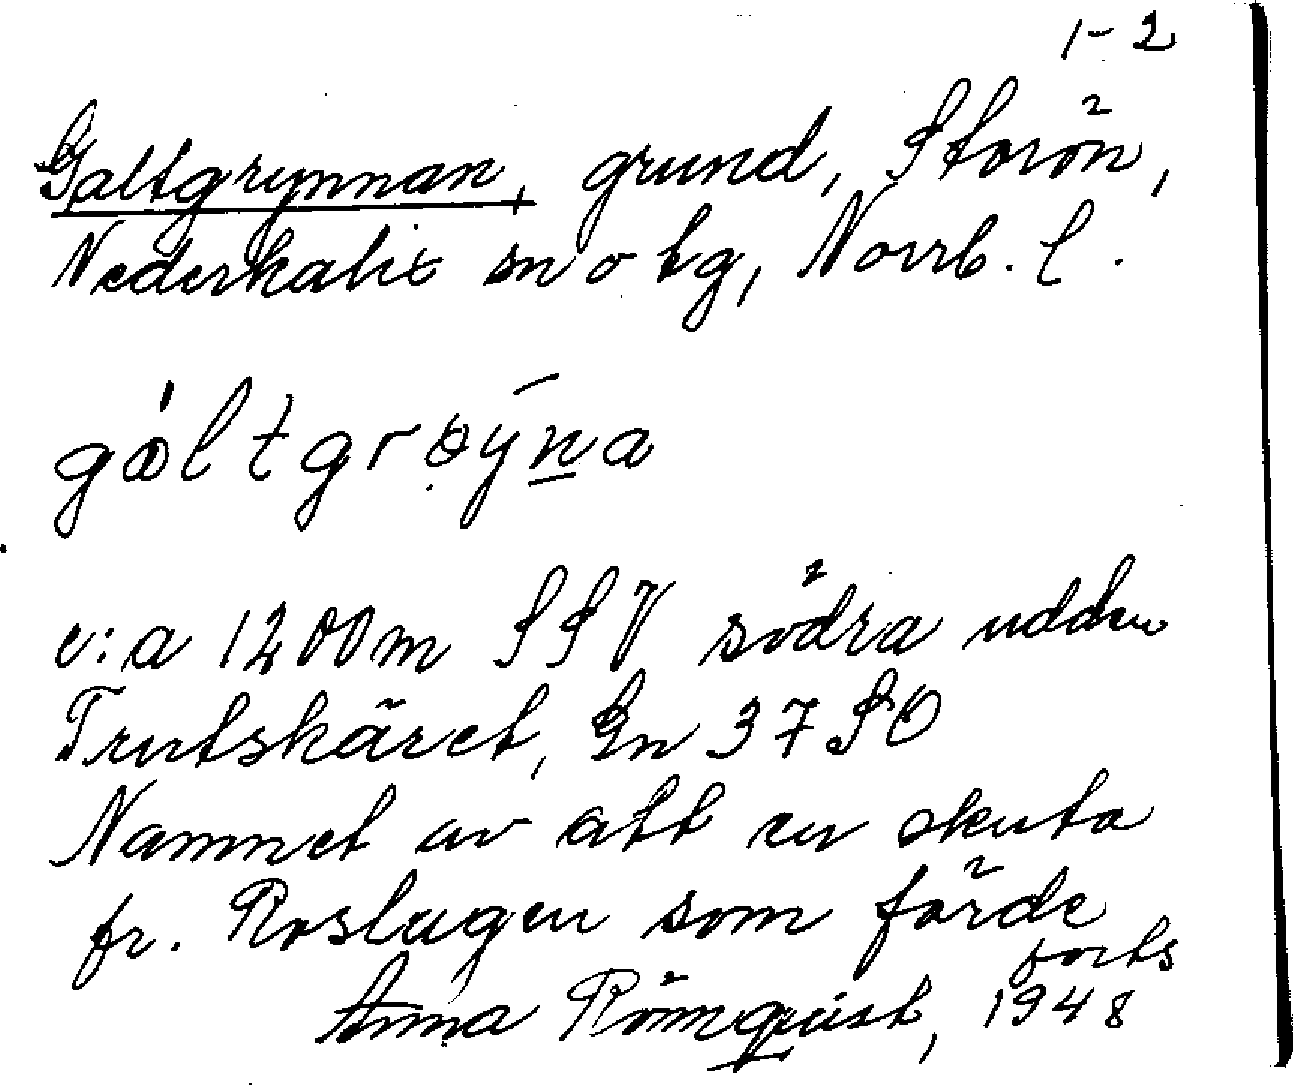 1-2
Galtgrynnan, grund, Storön,
Nederkalix sn o tg, Norrb. l.
c:a 1200m SSV södra udden
Trutskäret, Gn 37 SO
Namnet av att en skuta
fr. Roslagen som förde
forts
Anna Römquist, 1948